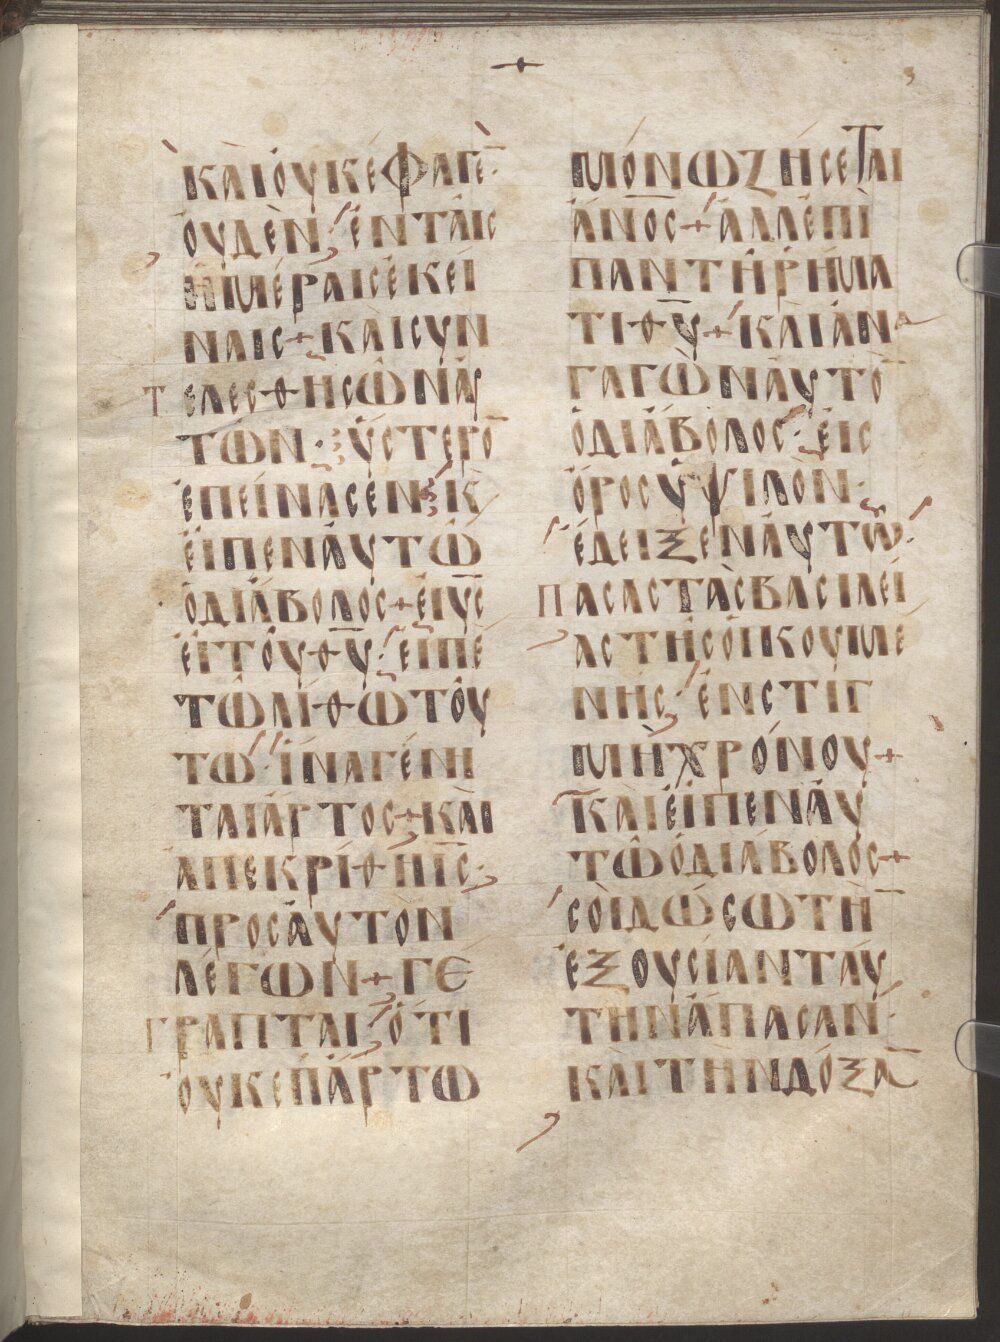 ΚΑΙ ΟΥΚ ΕΦΑΓΕ̅·
ΟΥΔΕΝ ΕΝ ΤΑΙΣ
ΗΜΕΡΑΙΣ ΕΚΕΙ
ΝΑΙΣ + ΚΑΙ ΣΥΝ
ΤΕΛΕΣΘΗΣΩΝ ΑΥ
ΤΩΝ· ΥΣΤΕΡΟ̅
ΕΠΕΙΝΑΣΕΝ· Κ̀
ΕΙΠΕΝ ΑΥΤΩ
Ο ΔΙΑΒΟΛΟΣ + ΕΙ Υ̅Σ̅
ΕΙ ΤΟΥ Θ̅Υ̅· ΕΙΠΕ
ΤΩ ΛΙΘΩ ΤΟΥ
ΤΩ· ΙΝΑ ΓΕΝΗ
ΤΑΙ ΑΡΤΟΣ + ΚΑΙ
ΑΠΕΚΡΙΘΗ Ι̅Σ̅·
ΠΡΟΣ ΑΥΤΟΝ
ΛΕΓΩΝ + ΓΕ
ΓΡΑΠΤΑΙ· ΟΤΙ
ΟΥΚ ΕΠ ΑΡΤΩ
ΜΟΝΩ ΖΗΣΕΤΑΙ
Α̅Ν̅Ο̅Σ̅ + ΑΛΛ ΕΠΙ
ΠΑΝΤΙ ΡΗΜΑ
ΤΙ Θ̅Υ̅ + ΚΑΙ ΑΝΑ
ΓΑΓΩΝ ΑΥΤΟ̅
Ο ΔΙΑΒΟΛΟΣ· ΕΙΣ
ΟΡΟΣ ΥΨΙΛΟΝ·
ΕΔΕΙΞΕΝ ΑΥΤΩ·
ΠΑΣΑΣ ΤΑΣ ΒΑΣΙΛΕΙ
ΑΣ ΤΗΣ ΟΙΚΟΥΜΕ
ΝΗΣ· ΕΝ ΣΤΙΓ
ΜΗ ΧΡΟΝΟΥ +
ΚΑΙ ΕΙΠΕΝ ΑΥ
ΤΩ Ο ΔΙΑΒΟΛΟΣ +
ΣΟΙ ΔΩΣΩ ΤΗ̅
ΕΞΟΥΣΙΑΝ ΤΑΥ
ΤΗΝ ΑΠΑΣΑΝ·
ΚΑΙ ΤΗΝ ΔΟΞΑ̅